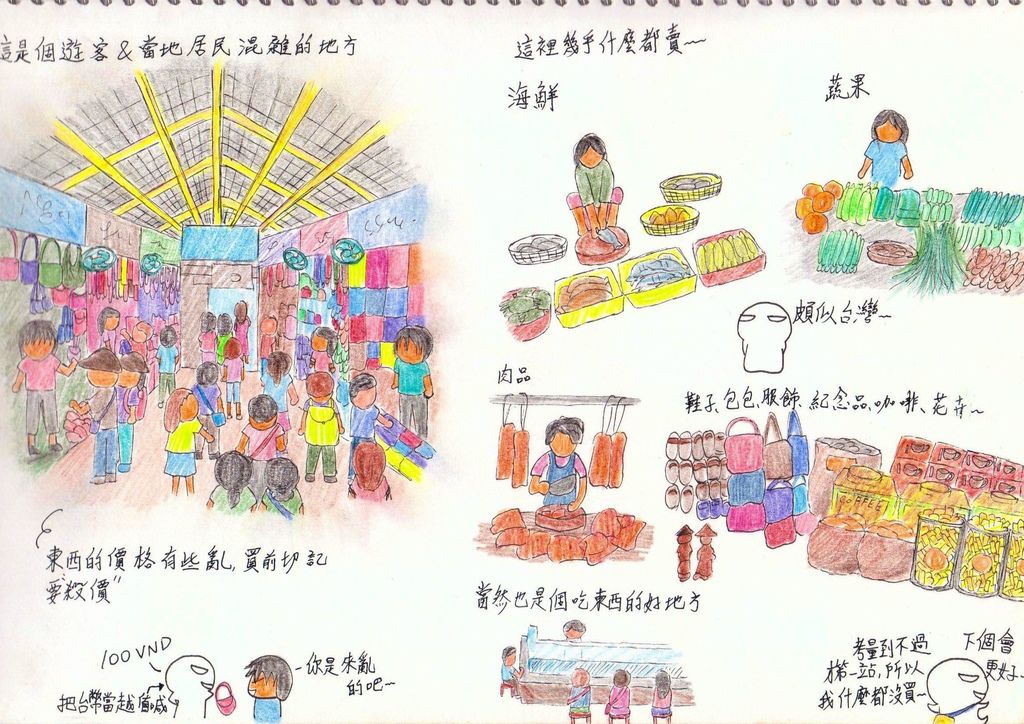 這是個遊客&當地居民混雜的地方
東西的價格有些亂,買前切記
要"殺價"
100 VND
把台幣當越盾喊
-你是來亂
的吧~
這裡幾乎什麼都賣~
海鮮
蔬果
頗似台灣~
肉品
鞋子、包包、服飾、紀念品、咖啡、花卉~
COFFEE
當然也是個吃東西的好地方
考量到不過
第一站,所以
我什麼都沒買~
下個會
更好~